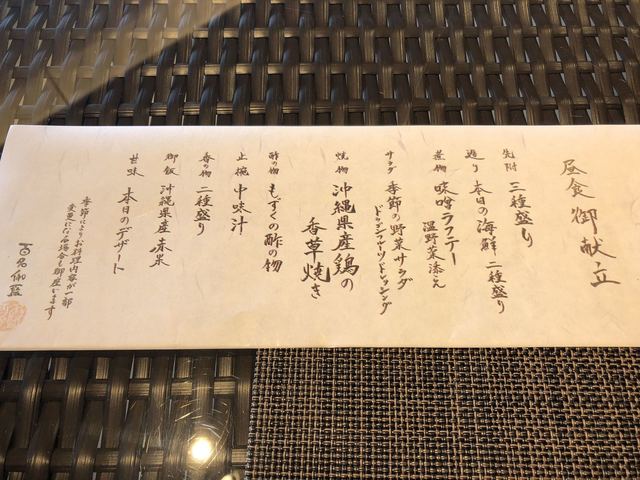 昼食御献立
先附 三種盛り
造り 本日の海鮮二種盛り
煮物 味噌ラフテー
温野菜添え
サラダ 季節の野菜サラダ
ドラゴンフルーツドレッシング
焼物 沖縄県産鶏の
香草焼き
酢の物 もずくの酢の物
止椀 中味汁
香の物 二種盛り
御飯 沖縄県産
甘味 本日のデザート
季節によりお料理内容が一部
変更になる場合も御座います
百名伽藍